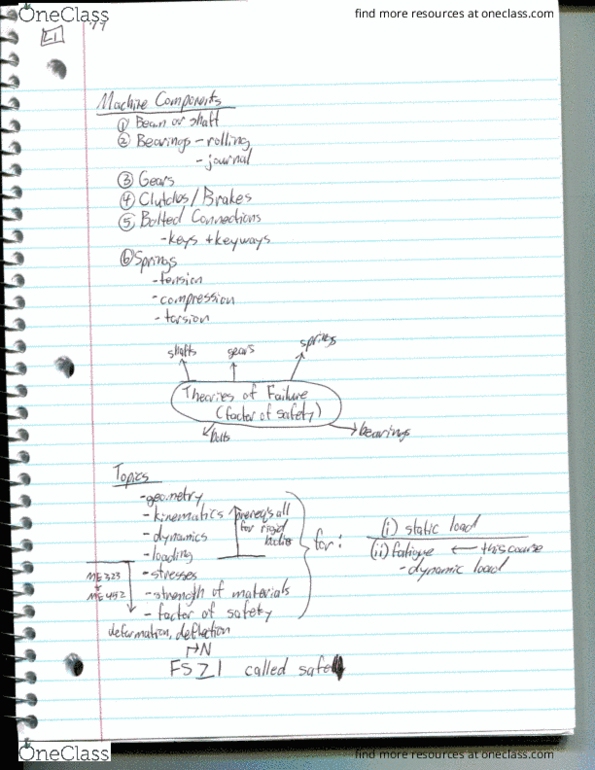 OneClass
find more resources at oneclass.com
L1
Machine Components
① Beam or shaft
② Bearings - rolling
- journal
③ Gears
④ Clutches / Brakes
⑤ Bolted Connections
- keys + keyways
⑥ Springs
- tension
- compression
- torsion
shafts gears springs
Theories of Failure
(factor of safety)
bolts bearings
Topics
- geometry
- kinematics
- dynamics
- loading
prereqs all
for rigid
bodies
for:
(i) static load
(ii) fatigue ← this course
- dynamic load
ME 323
ME 452
- stresses
- strength of materials
- factor of safety
deformation, deflection
N
FS ≥ 1 called safe
OneClass
find more resources at oneclass.com